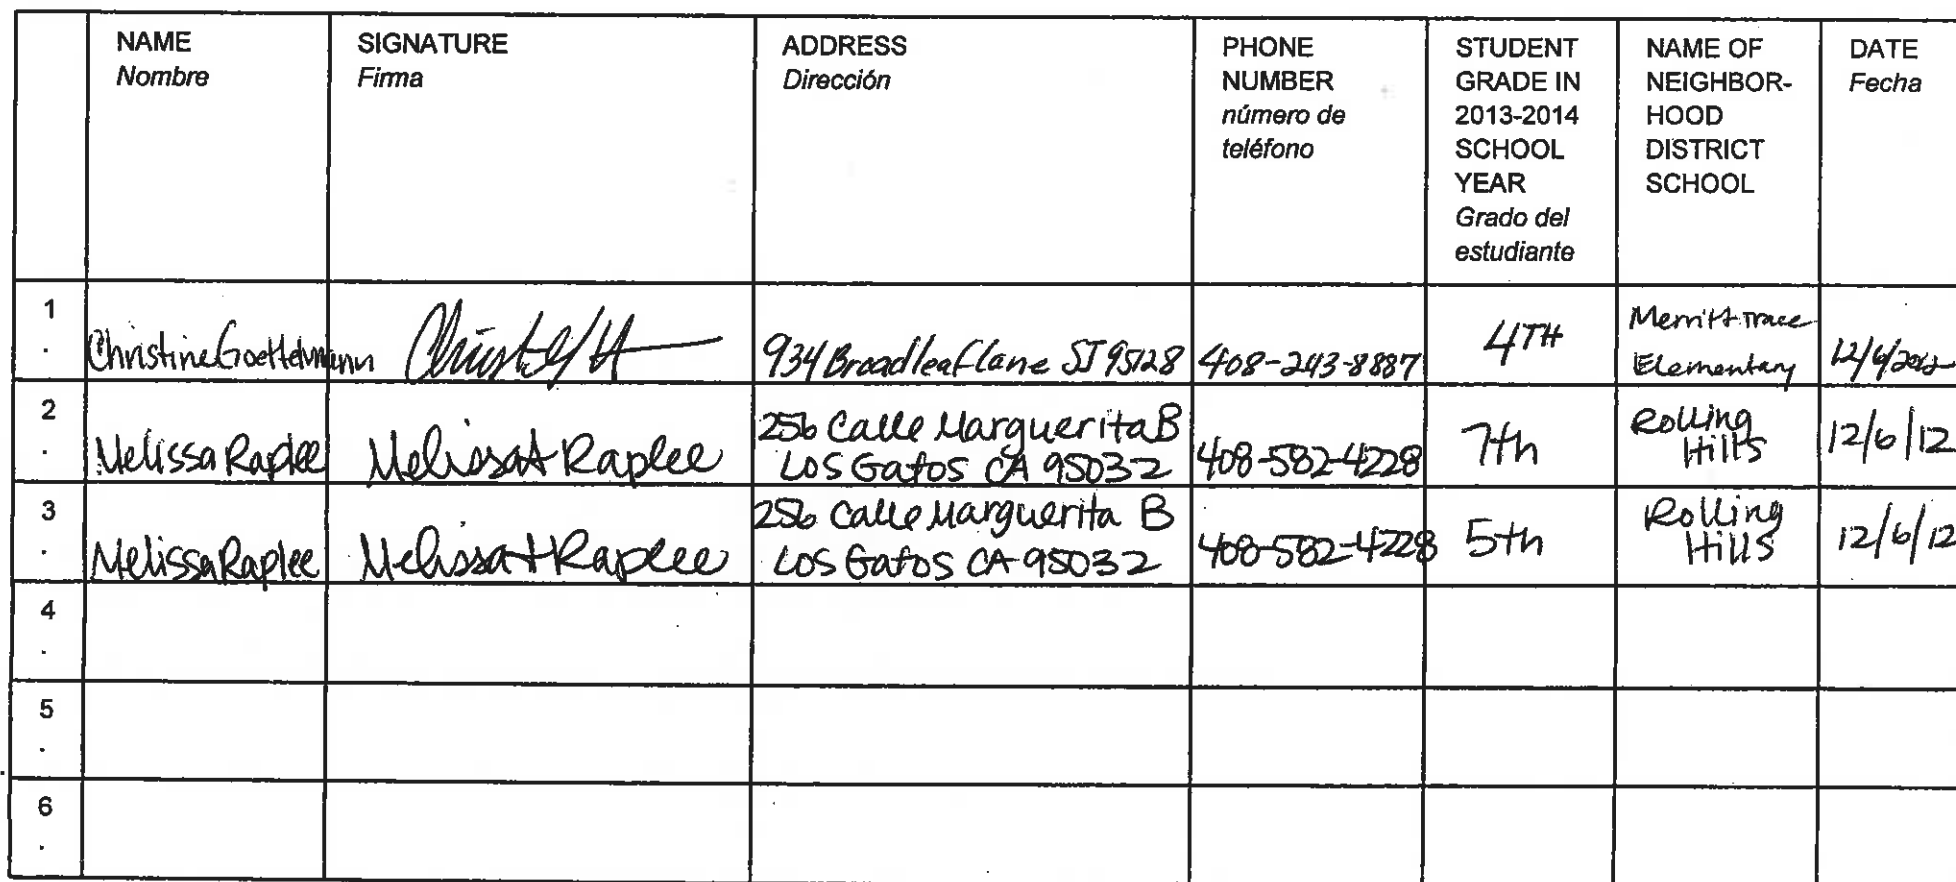 NAME
Nombre
SIGNATURE
Firma
ADDRESS
Dirección
PHONE
NUMBER
número de
teléfono
STUDENT
GRADE IN
2013-2014
SCHOOL
YEAR
Grado del
estudiante
NAME OF
NEIGHBOR-
HOOD
DISTRICT
SCHOOL
DATE
Fecha
1
.
Christine
934 Broadleaf lane SJ 95128
408-243-8887
4TH
Merritt Trace
Elementary
12/6/2012
2
.
Melissa Raplee
Melissa A Raplee
256 Calle Marguerita B
LOS Gatos CA 95032
408-582-4228
7th
Rolling
Hills
12/6/12
3
.
Melissa Raplee
Melissa A Raplee
256 Calle Marguerita B
LOS Gatos CA 95032
408-582-4228
5th
Rolling
Hills
12/6/12
4
.
5
.
6
.